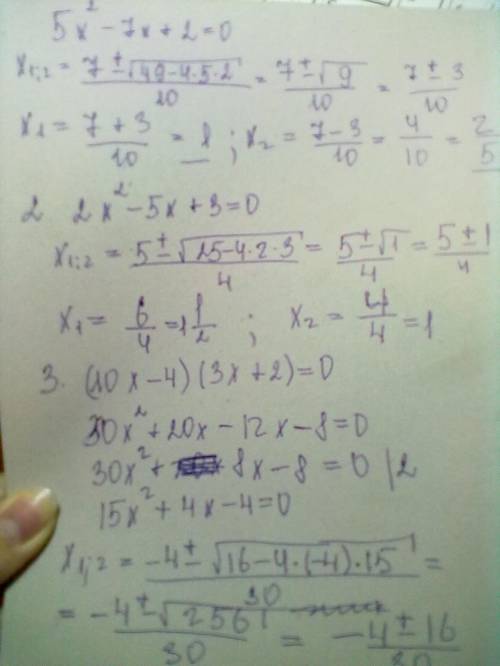 5x² - 7x + 2 = 0
x₁;₂ = (7 ± √(49 - 4·5·2))/10 = (7 ± √9)/10 = (7 ± 3)/10
x₁ = (7 + 3)/10 = 1 ; x₂ = (7 - 3)/10 = 4/10 = 2/5
2 2x² - 5x + 3 = 0
x₁;₂ = (5 ± √(25 - 4·2·3))/4 = (5 ± √1)/4 = (5 ± 1)/4
x₁ = 6/4 = 1 1/2 ; x₂ = 4/4 = 1
3. (10x - 4)(3x + 2) = 0
30x² + 20x - 12x - 8 = 0
30x² + 8x - 8 = 0 |2
15x² + 4x - 4 = 0
x₁;₂ = (-4 ± √(16 - 4·(-4)·15))/30 =
= (-4 ± √256)/30 = (-4 ± 16)/30